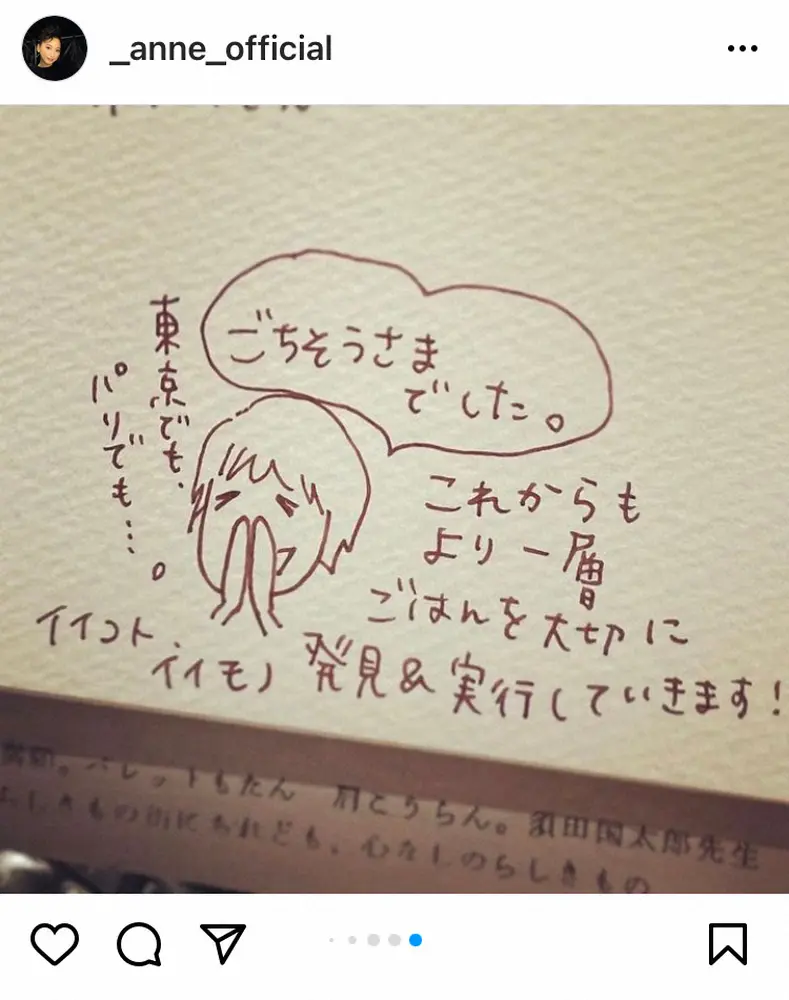 _anne_official
ごちそうさま
でした。
東京でも、
パリでも…。
これからも
より一層
ごはんを大切に
イイコト、
イイモノ 発見&実行していきます!
パレットもたん 肩とうらん。須田国太郎先生
らしきもの街にあれども、心なしのらしきもの